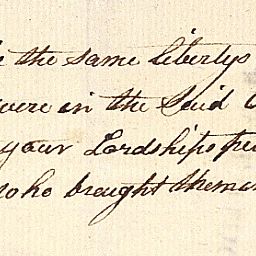 the same libertys
were in the Said
your Lordships
who brought them